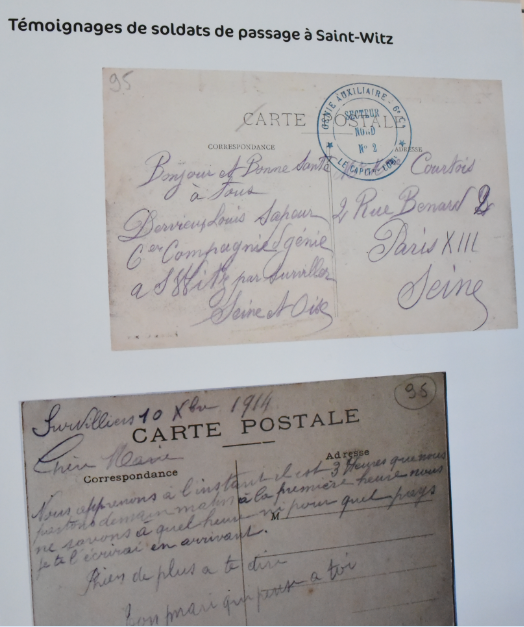 Témoignages de soldats de passage à Saint-Witz
95
CARTE POSTALE
CORRESPONDANCE
ADRESSE
GÉNIE AUXILIAIRE
SECTEUR
NORD
N° 2
Bonjour et Bonne Santé
à tous
Courtois
Louis Sapeur
2 Rue Benard 2
6er Compagnie génie
Paris XIII
a St Witz par Survilliers
Seine et Oise
Seine
95
Survilliers 10 Xbre 1914
CARTE POSTALE
Chère Marie
Correspondance
Adresse
M
Nous apprenons à l'instant il est 3 Heures que nous
partons demain matin à la première heure nous
ne savons à quel heure ni pour quel pays
je te l'écrirai en arrivant.
Rien de plus a te dire
Ton mari qui pense a toi